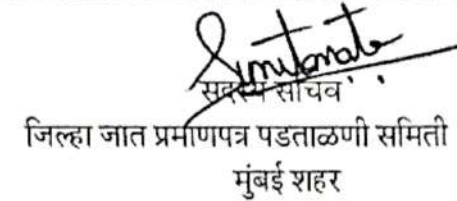 सदस्य सचिव
जिल्हा जात प्रमाणपत्र पडताळणी समिती
मुंबई शहर